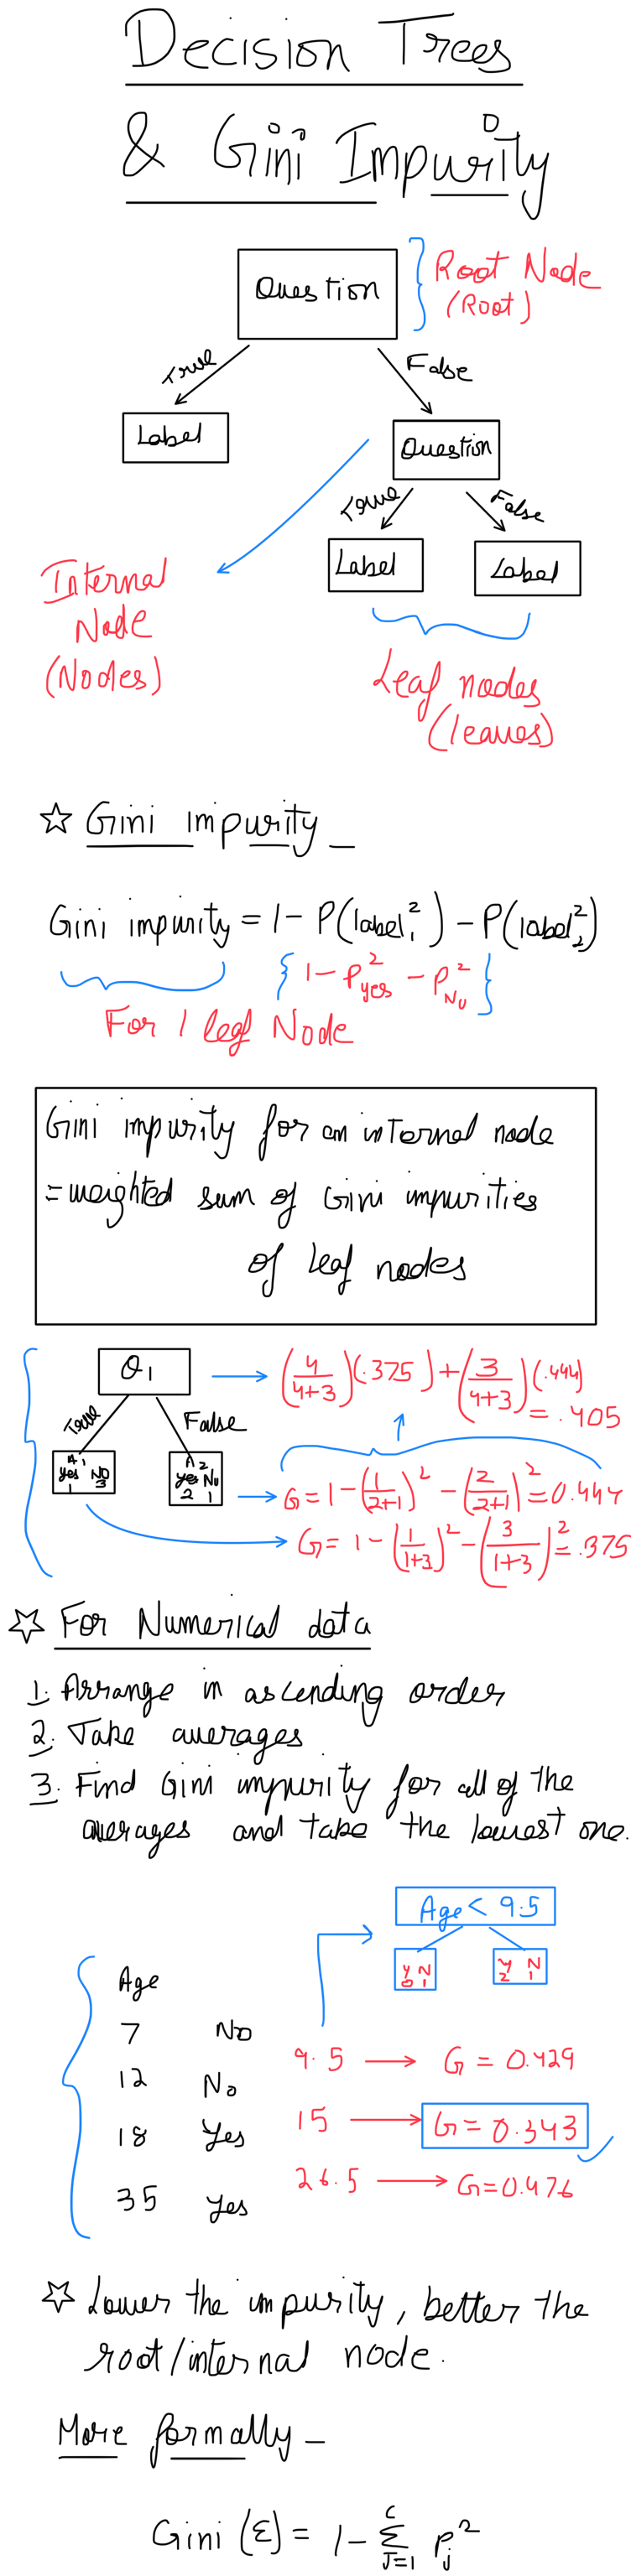 Decision Trees
& Gini Impurity
Question
Root Node
(Root)
True
False
Label
Question
True
False
Label
Label
Internal
Node
(Nodes)
Leaf nodes
(leaves)
☆ Gini impurity –
Gini impurity = 1 – P(label₁²) – P(label₂²)
{1 – P²yes – P²No}
For 1 leaf Node
Gini impurity for an internal node
= weighted sum of Gini impurities
of leaf nodes
Q1
(4/(4+3))(.375) + (3/(4+3))(.444)
= .405
True
False
A1
Yes No
1 3
A2
Yes No
2 1
G = 1 – (1/(2+1))² – (2/(2+1))² = 0.444
G = 1 – (1/(1+3))² – (3/(1+3))² = .375
☆ For Numerical data
1. Arrange in ascending order
2. Take averages
3. Find Gini impurity for all of the
averages and take the lowest one.
Age < 9.5
Y N
0 1
Y N
2 1
Age
7 No
12 No
18 Yes
35 Yes
9.5 → G = 0.429
15 → G = 0.343
26.5 → G = 0.476
☆ Lower the impurity, better the
root/internal node.
More formally –
Gini (Ɛ) = 1 – Σ_{J=1}^{C} Pj²